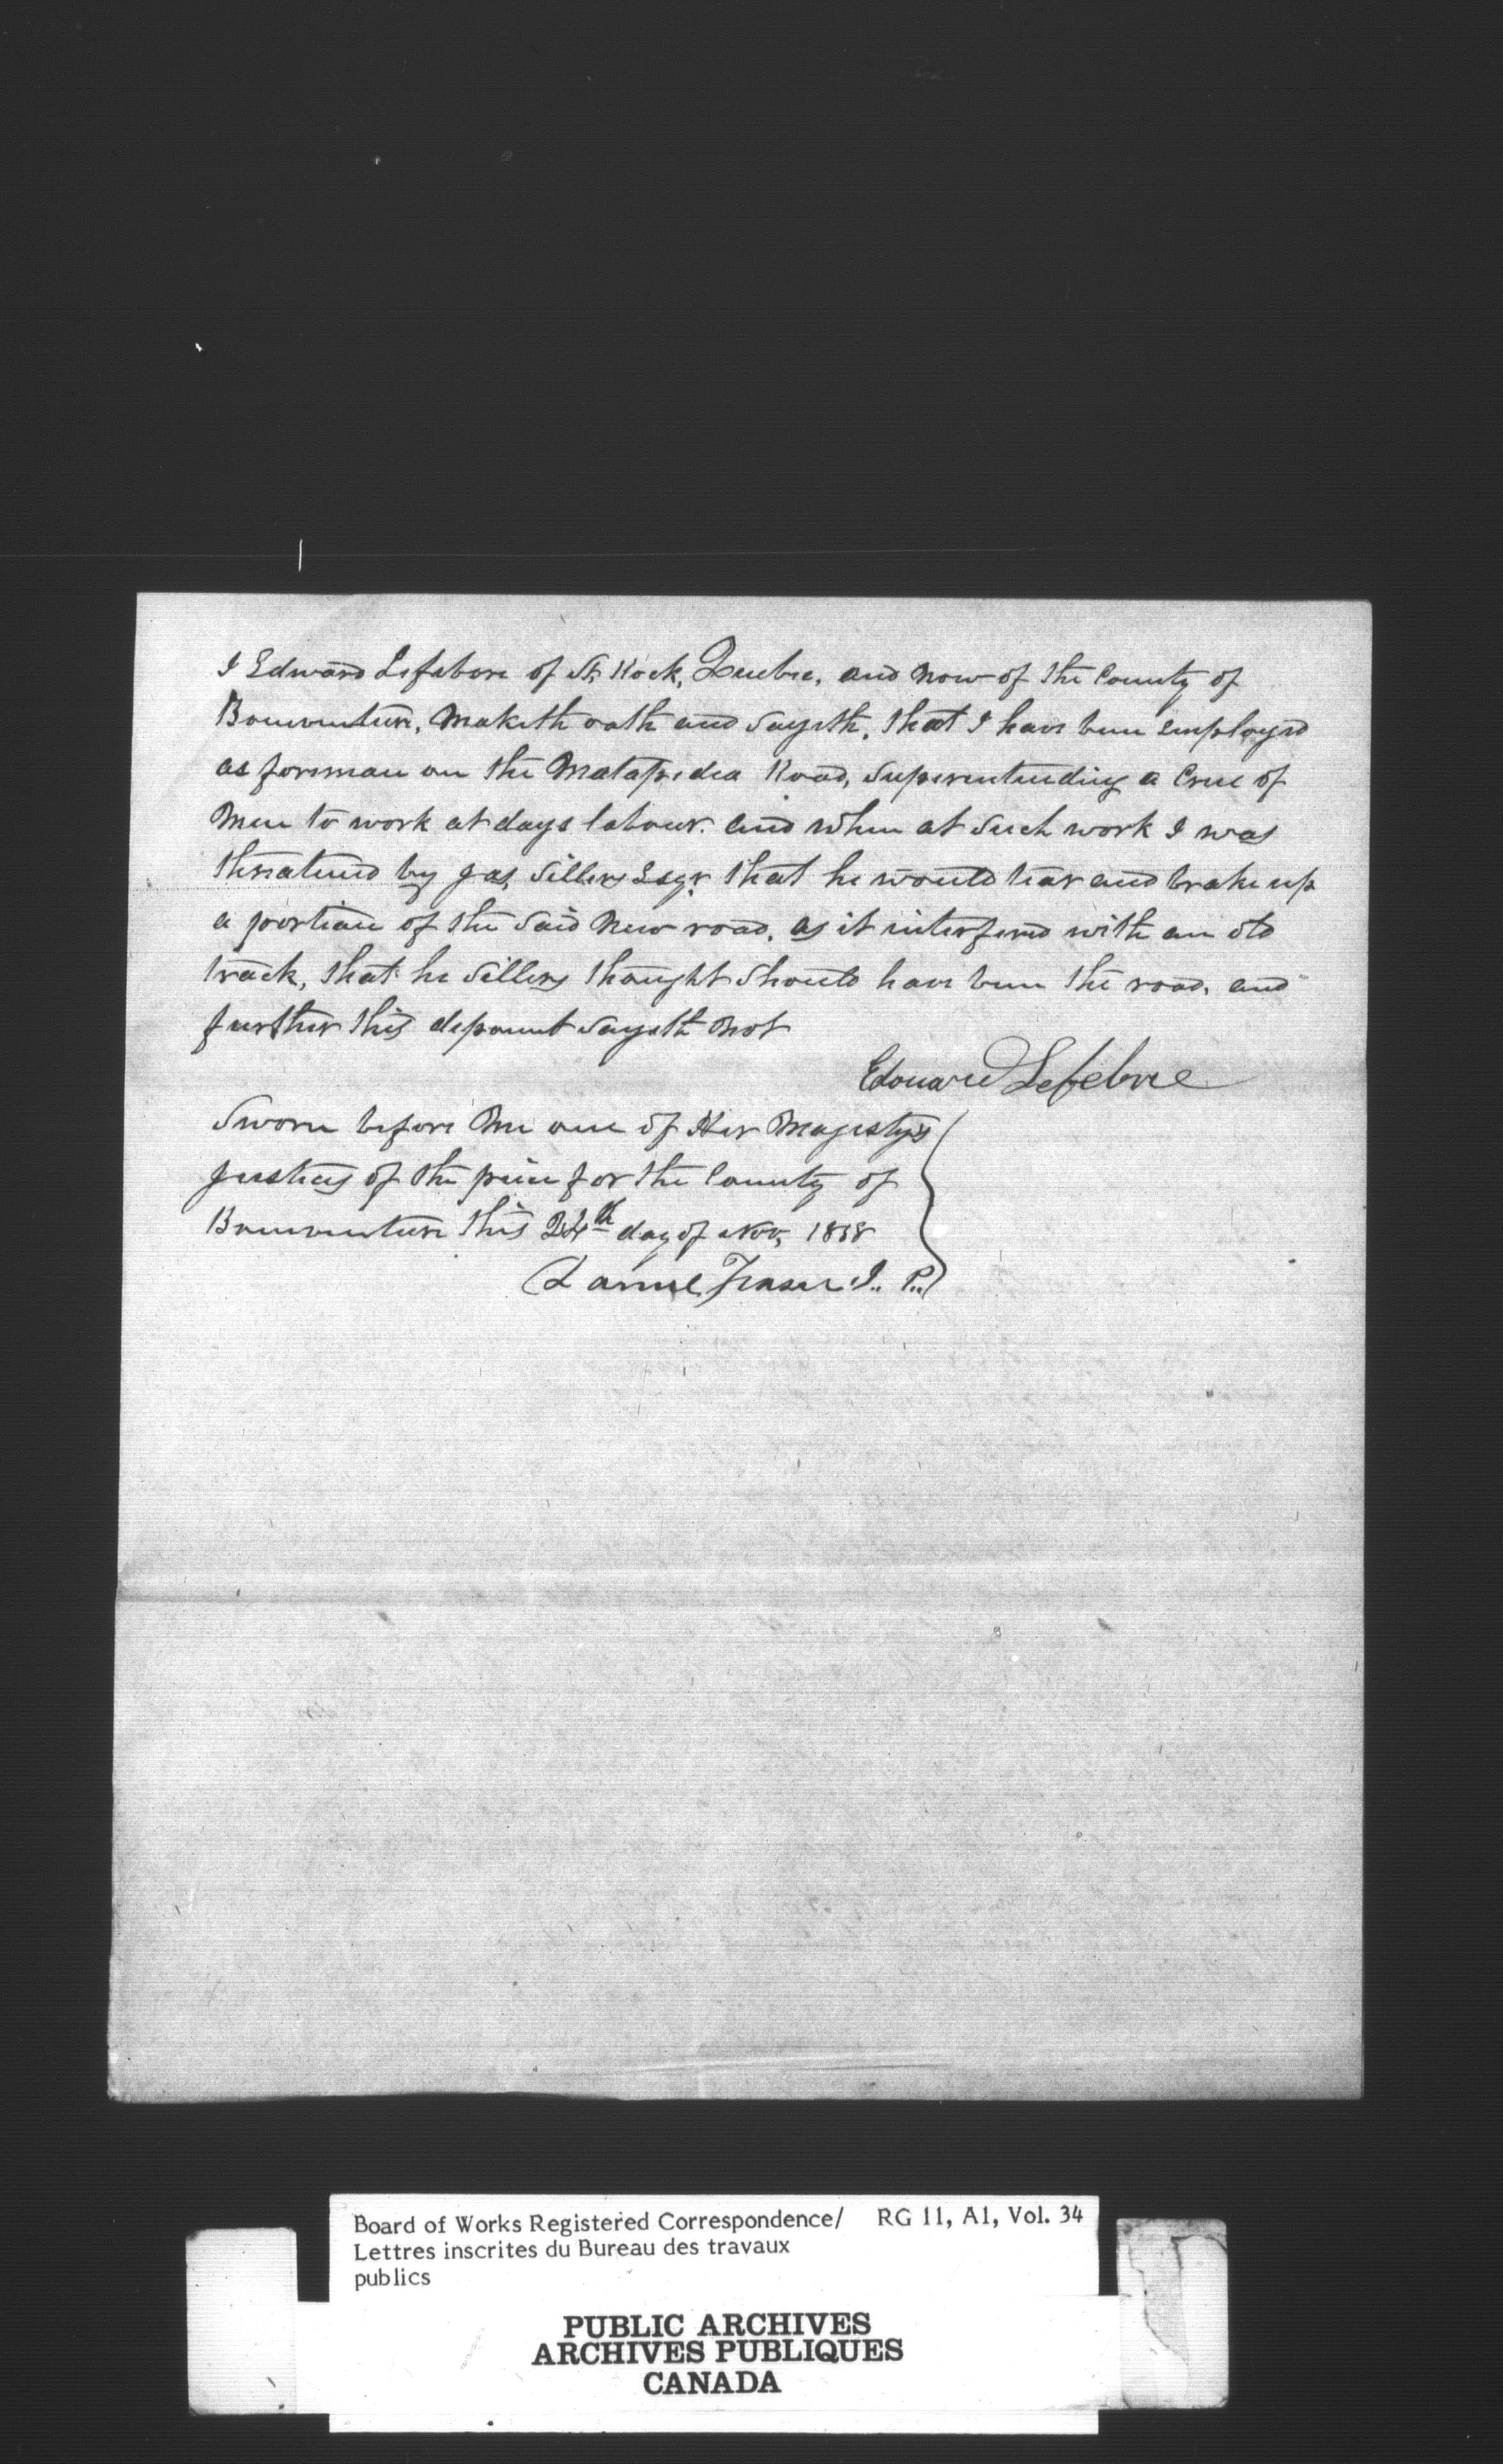 I Edward Lefabore of St. Rock, Quebec, and now of the County of
Bonaventure, Maketh oath and Sayeth, that I have been employed
as foreman on the Matapedia Road, Superentending a Crue of
Men to work at days labour. and when at Such work I was
threatened by Jas, Sillery Esqr that he would tear and brake up
a portion of the Said New road, as it interfered with an old
track, that he Sillery thought Should have been the road, and
further this deponent Sayeth Not
Edouard Lefebvre
Sworn before Me one of Her Majestys
Justices of the peice for the County of
Bonaventure this 24th day of Nov, 1858
Daniel Fraser J.. P..
Board of Works Registered Correspondence/ RG 11, A1, Vol. 34
Lettres inscrites du Bureau des travaux
publics
PUBLIC ARCHIVES
ARCHIVES PUBLIQUES
CANADA